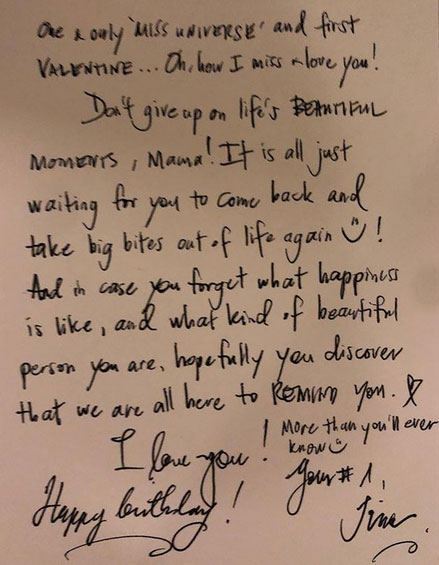 One & only 'MISS UNIVERSE' and first
VALENTINE... Oh, how I miss & love you!
Don't give up on life's BEAUTIFUL
MOMENTS, Mama! It is all just
waiting for you to come back and
take big bites out of life again ☺!
And in case you forget what happiness
is like, and what kind of beautiful
person you are, hopefully you discover
that we are all here to REMIND you. ♡
I love you! More than you'll ever
know ☺
Your #1,
Happy birthday!
Tina